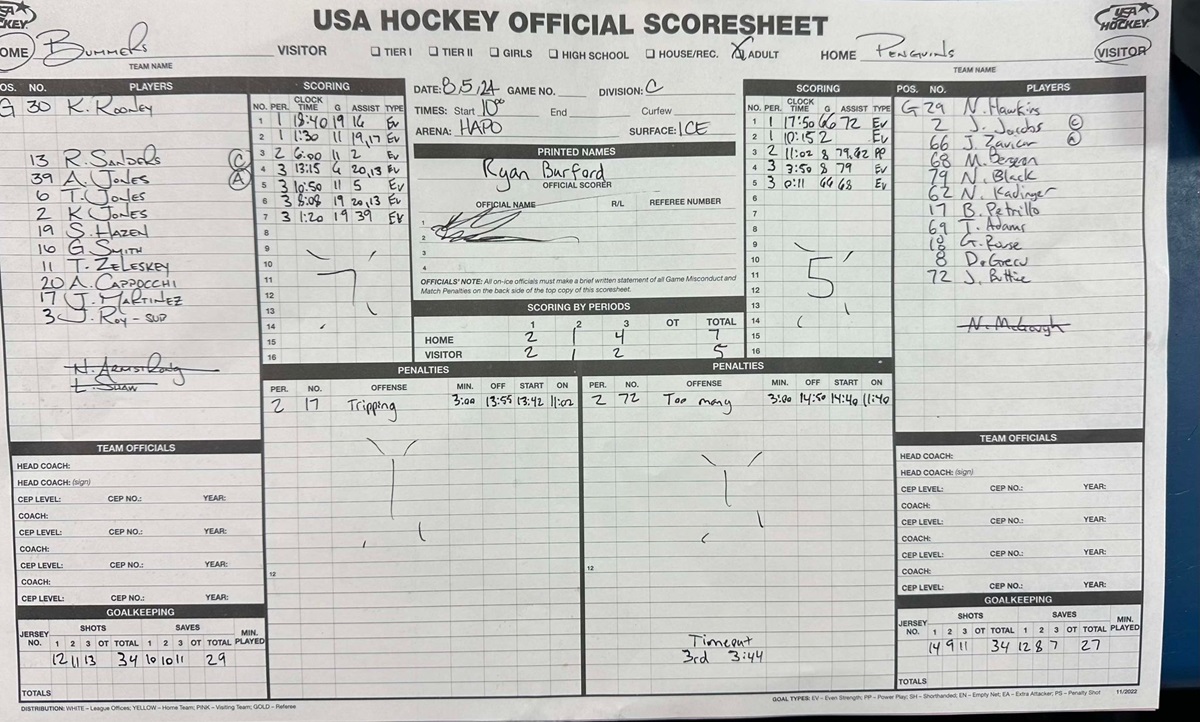 USA HOCKEY OFFICIAL SCORESHEET
USA
HOCKEY
HOME Bummers
TEAM NAME
VISITOR
TIER I TIER II GIRLS HIGH SCHOOL HOUSE/REC. ADULT
HOME Penguins VISITOR
TEAM NAME
POS. NO. PLAYERS
G 30 K. Rooney
13 R. Sanders C
39 A. Jones A
6 T. Jones
2 K. Jones
19 S. Hazen
16 G. Smith
11 T. Zeleskey
20 A. Cappocchi
17 J. Martinez
3 J. Roy - SUB
N. Armstrong
L. Shaw
SCORING
NO. PER. CLOCK TIME G ASSIST TYPE
1 1 18:40 19 16 Ev
2 1 1:30 11 19,17 Ev
3 2 6:00 11 2 Ev
4 3 13:15 6 20,13 Ev
5 3 10:50 11 5 Ev
6 3 8:08 19 20,13 Ev
7 3 1:20 19 39 EV
8
9
10
11
12
13
14
15
16
7
DATE: 8,5,24 GAME NO. DIVISION: C
TIMES: Start 10:00 End Curfew
ARENA: HAPO SURFACE: ICE
PRINTED NAMES
Ryan Burford
OFFICIAL SCORER
OFFICIAL NAME R/L REFEREE NUMBER
1
2
3
4
OFFICIALS' NOTE: All on-ice officials must make a brief written statement of all Game Misconduct and
Match Penalties on the back side of the top copy of this scoresheet.
SCORING BY PERIODS
1 2 3 OT TOTAL
HOME 2 1 4 7
VISITOR 2 1 2 5
SCORING
NO. PER. CLOCK TIME G ASSIST TYPE
1 1 17:50 66 72 Ev
2 1 10:15 2 Ev
3 2 11:02 8 79,62 PP
4 3 3:50 8 79 Ev
5 3 0:11 66 68 Ev
6
7
8
9
10
11
12
13
14
15
16
5
POS. NO. PLAYERS
G 29 N. Hawkins
2 J. Jacobs C
66 J. Zavicar A
68 M. Bergean
79 N. Black
62 N. Kadinger
17 B. Petrillo
69 T. Adams
18 G. Rouse
8 D. Grecu
72 J. Buttice
PENALTIES
PER. NO. OFFENSE MIN. OFF START ON
2 17 Tripping 3:00 13:55 13:42 11:02
12
PENALTIES
PER. NO. OFFENSE MIN. OFF START ON
2 72 Too many 3:00 14:50 14:40 11:40
12
Timeout
3rd 3:44
TEAM OFFICIALS
HEAD COACH:
HEAD COACH: (sign)
CEP LEVEL: CEP NO.: YEAR:
COACH:
CEP LEVEL: CEP NO.: YEAR:
COACH:
CEP LEVEL: CEP NO.: YEAR:
COACH:
CEP LEVEL: CEP NO.: YEAR:
GOALKEEPING
JERSEY NO. SHOTS 1 2 3 OT TOTAL SAVES 1 2 3 OT TOTAL MIN. PLAYED
12 11 13 34 10 10 11 29
TOTALS
TEAM OFFICIALS
HEAD COACH:
HEAD COACH: (sign)
CEP LEVEL: CEP NO.: YEAR:
COACH:
CEP LEVEL: CEP NO.: YEAR:
COACH:
CEP LEVEL: CEP NO.: YEAR:
COACH:
CEP LEVEL: CEP NO.: YEAR:
GOALKEEPING
JERSEY NO. SHOTS 1 2 3 OT TOTAL SAVES 1 2 3 OT TOTAL MIN. PLAYED
14 9 11 34 12 8 7 27
TOTALS
DISTRIBUTION: WHITE – League Offices; YELLOW – Home Team; PINK – Visiting Team; GOLD – Referee
GOAL TYPES: EV – Even Strength; PP – Power Play; SH – Shorthanded, EN – Empty Net; EA – Extra Attacker; PS – Penalty Shot 11/2022